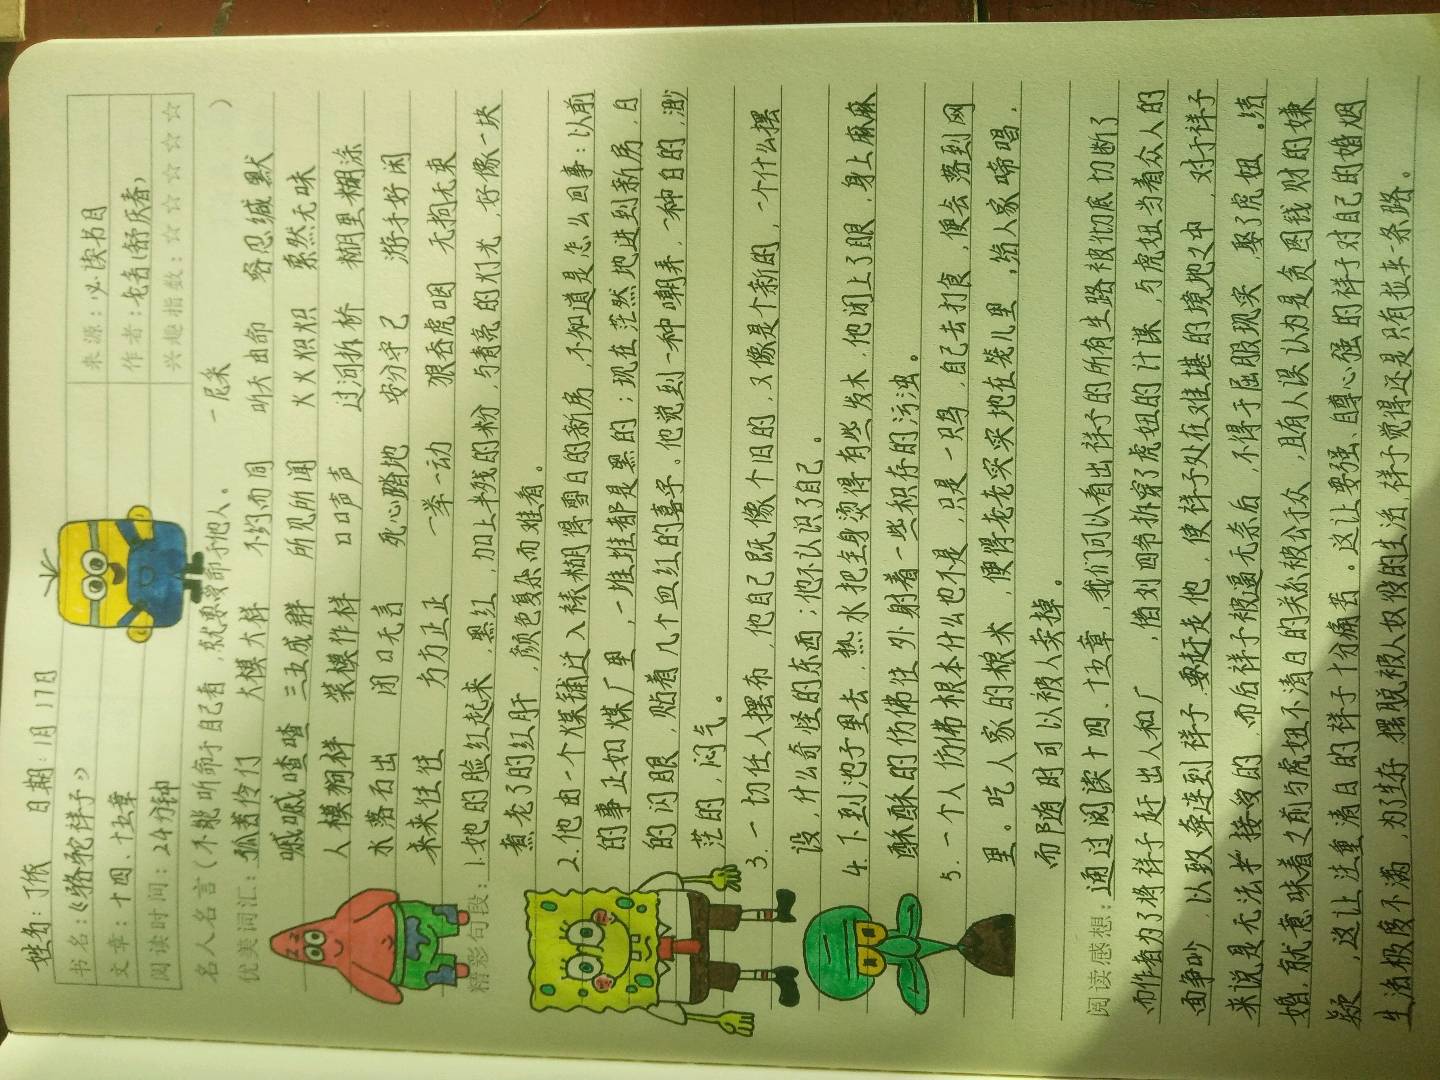 姓名：丁依 日期：1月17日
书名：《骆驼祥子》 来源：必读书目
文章：十四、十五章 作者：老舍（舒庆春）
阅读时间：24分钟 兴趣指数：☆☆☆☆☆
名人名言（不能听命于自己者，就要受命于他人。 —尼采 ）
优美词汇：孤苦伶仃 大模大样 不约而同 听天由命 容忍缄默
嘁嘁喳喳 三五成群 所见所闻 火火炽炽 索然无味
人模狗样 装模作样 口口声声 过河拆桥 糊里糊涂
水落石出 闭口无言 死心踏地 安分守己 游手好闲
来来往往 方方正正 一举一动 狼吞虎咽 无拘无束
精彩句段：1.她的脸红起来，黑红，加上半残的粉，与青亮的灯光，好像一块
煮老了的红肝，颜色复杂而难看。
2.他由一个煤铺迁入裱糊得雪白的新房，不知道是怎么回事：以前
的事正如煤厂里，一堆堆都是黑的；现在茫然地进到新房，白
的闪眼，贴着几个血红的喜字。他觉到一种嘲弄，一种白的，渺
茫的，闷气。
3.一切任人摆布，他自己既像个旧的，又像是个新的，一个什么摆
设，什么奇怪的东西；他不认识了自己。
4.下到池子里去，热水把全身烫得有些发木，他闭上了眼，身上麻麻
酥酥的仿佛往外射着一些积存的污浊。
5.一个人仿佛根本什么也不是，只是一只鸟，自己去打食，便会落到网
里。吃人家的粮米，便得老老实实地在笼儿里，给人家啼唱，
而随时可以被人卖掉。
阅读感想：通过阅读十四、十五章，我们可以看出祥子的所有生路被彻底切断了
而作者为了将祥子赶出人和厂，借刘四爷拆穿了虎妞的计谋，与虎妞当着众人的
面争吵，以致牵连到祥子，要赶走他，使祥子处在难堪的境地之中，对于祥子
来说是无法接受的，而后祥子被逼无奈后，不得于屈服现实，娶了虎妞。结
婚，就意味着之前与虎妞不清白的关系被公开众，且有人误认为是贪图钱财的嫌
疑，这让注重清白的祥子十分痛苦。这让要强、自尊心强的祥子对自己的婚姻
生活极度不满，为了生存，摆脱被人奴役的生活，祥子觉得还是只有拉车一条路。